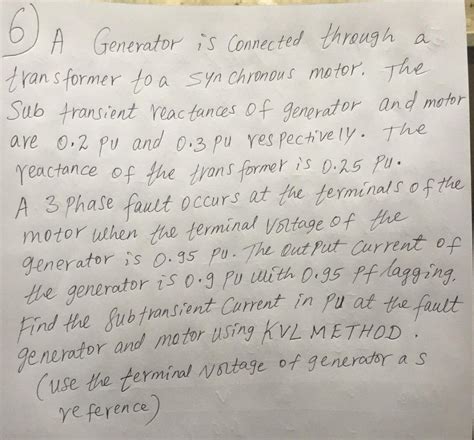 6) A Generator is Connected through a
transformer to a synchronous motor. The
Sub transient reactances of generator and motor
are 0.2 PU and 0.3 pu respectively. The
reactance of the transformer is 0.25 Pu.
A 3 phase fault occurs at the terminals of the
motor when the terminal voltage of the
generator is 0.95 Pu. The output current of
the generator is 0.9 PU with 0.95 Pf lagging.
Find the Subtransient Current in PU at the fault
generator and motor using KVL METHOD.
(use the terminal voltage of generator as
reference)